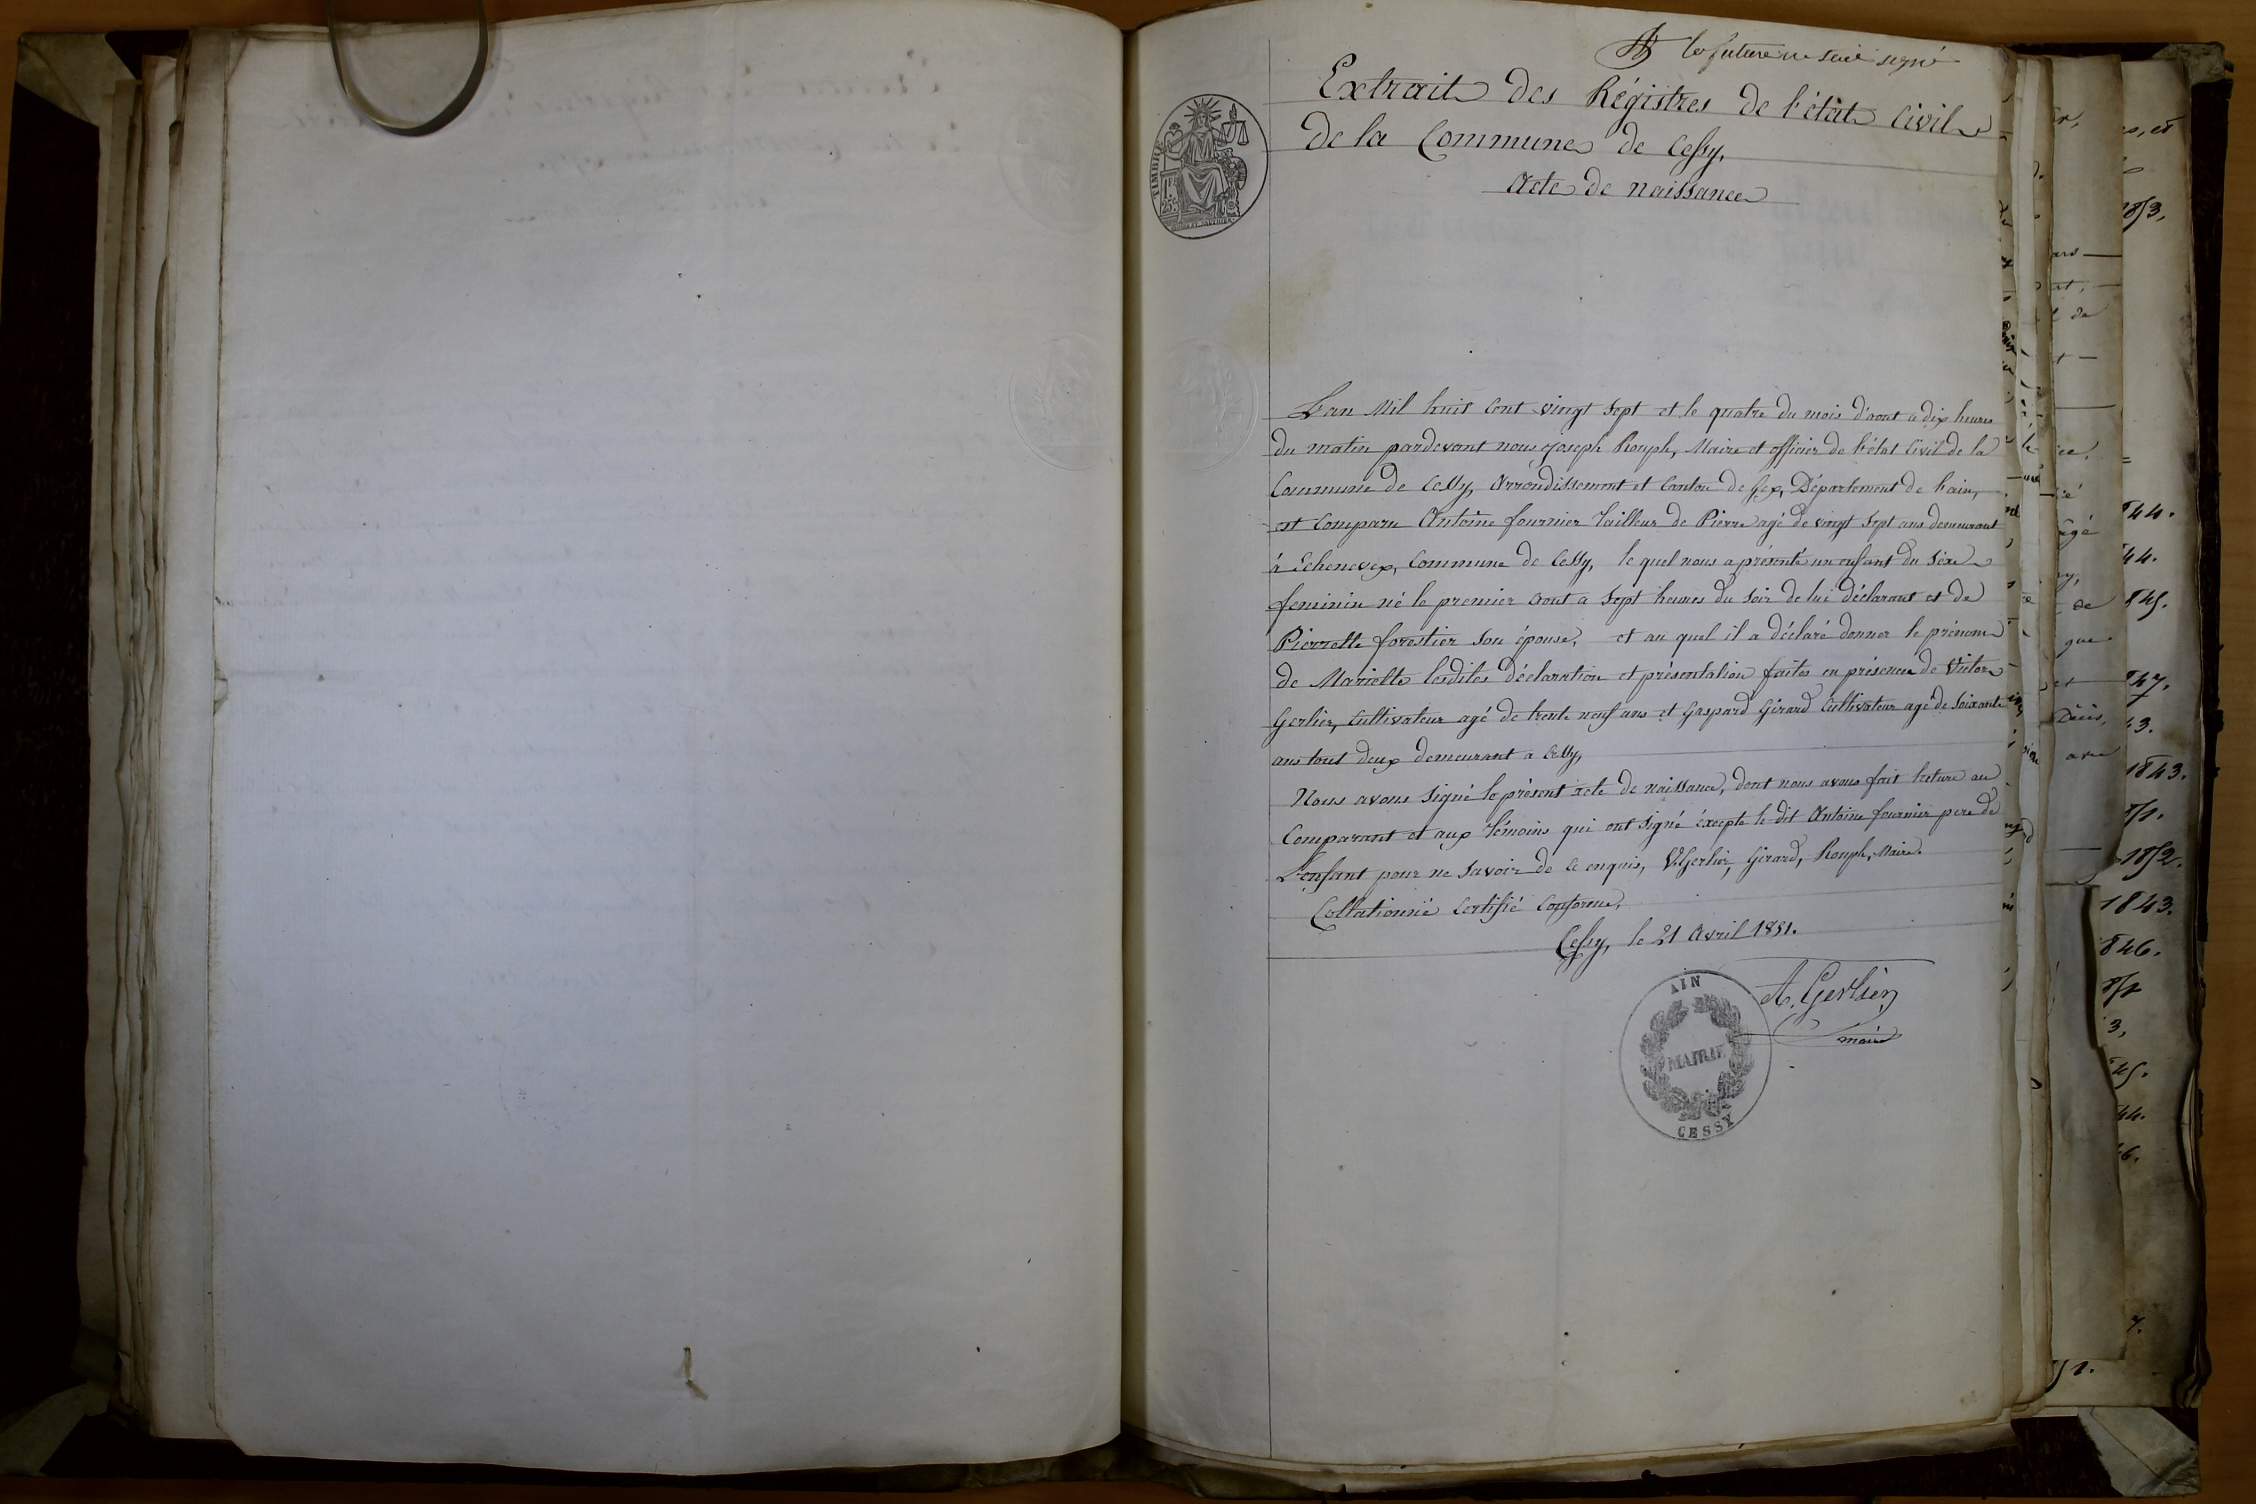 la future ne sait signé
Extrait des Régistres de l'état Civil
de la Commune de Cessy.
Acte de naissance
TIMBRE
1 F.
25 c.
L'an Mil huit Cent vingt Sept et le quatre du mois d'aout a dix heures
du matin pardevant nous Joseph Rouph, Maire et officier de l'état Civil de la
Commune de Cessy, Arrondissement et Canton de Gex, Département de l'ain,
est Comparu Antoine fournier Tailleur de Pierre agé de vingt Sept ans demeurant
à Echenevex, Commune de Cessy, le quel nous a présenté un enfant du Sexe
feminin né le premier aout a Sept heures du Soir de lui déclarant et de
Pierrette forestier Son épouse, et au quel il a déclaré donner le prénom
de Mariette lesdites déclaration et présentation faites en présence de Victor
Gerlier, Cultivateur agé de trente neuf ans et Gaspard Girard Cultivateur agé de Soixante
ans tout deux demeurant a Cessy,
Nous avons Signé le présent acte de naissance, dont nous avons fait lecture au
Comparant et aux Témoins qui ont Signé éxcepte le dit Antoine fournier pere de
L'enfant pour ne Savoir de ce enquis, V. Gerlier, Girard, Rouph, Maire.
Collationné Certifié Conforme,
Cessy, le 21 Avril 1851.
A. Gerlier
maire
AIN
MAIRIE
CESSY
1843.
1852.
1843.